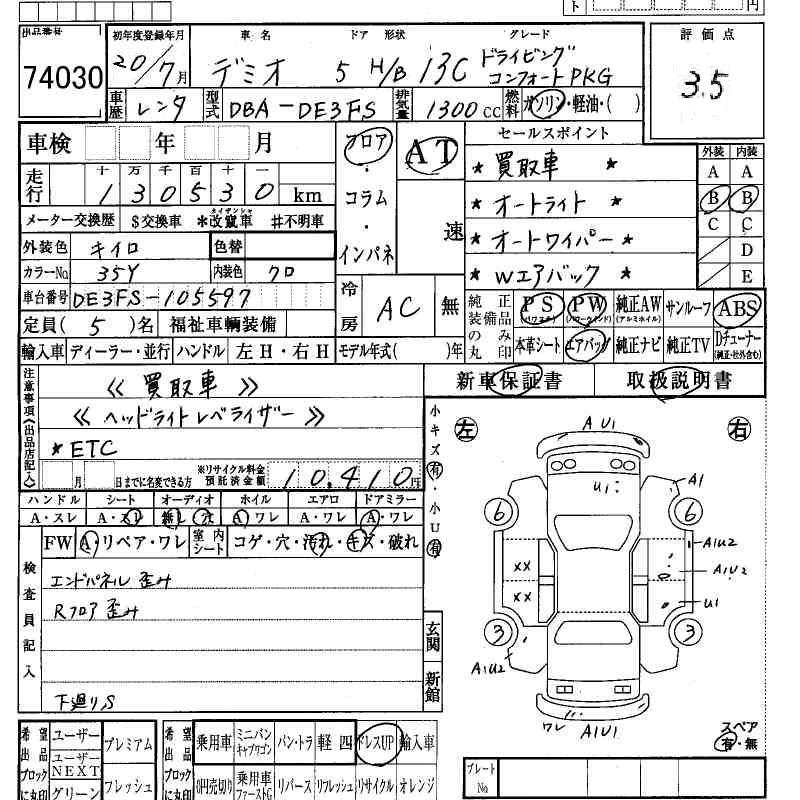 ト 円
出品番号 初年度登録年月 車名 ドア 形状 グレード 評価点
74030 20/7月 デミオ 5 H/B 13C ドライビング コンフォートPKG 3.5
車歴 レンタ 型式 DBA-DE3FS 排気量 1300cc 燃料 ガソリン・軽油・( )
車検 年 月 フロア・コラム・インパネ AT 速 セールスポイント 外装 内装
走行 十 万 千 百 十 一
130530 km
★買取車★ A A
★オートライト★ B B
★オートワイパー★ C C
★Wエアバック★ D
E
メーター交換歴 $交換車 *改竄車 #不明車
外装色 キイロ 色替
カラーNo. 35Y 内装色 クロ
車台番号 DE3FS-105597
冷房 AC 無
定員( 5 )名 福祉車輌装備
純正装備品のみ丸印 PS (パワステ) PW (パワーウインド) 純正AW (アルミホイル) サンルーフ ABS
本革シート エアバッグ 純正ナビ 純正TV Dチューナー (純正・社外含む)
輸入車 ディーラー・並行 ハンドル 左H・右H モデル年式( )年
注意事項(出品店記入)
≪買取車≫
≪ヘッドライトレベライザー≫
★ETC
月 日までに名変できる方 ※リサイクル料金預託済金額 10,410円
新車保証書 取扱説明書
小キズ有・小U有
ハンドル シート オーディオ ホイル エアロ ドアミラー
A・スレ A・スレ 無し 穴 A ワレ A・ワレ A・ワレ
FW A リペア・ワレ 室内シート コゲ・穴・汚れ・キズ・破れ
検査員記入
エンドパネル歪み
Rフロア歪み
下廻りS
玄関 新館
左 右
AU1
U1 A1
6 6
A1U2
XX A1U2
XX U1
3 3
A1U2
ワレ A1U1
スペア
有・無
希望出品ブロックに丸印 ユーザー プレミアム
ユーザーNEXT
グリーン フレッシュ
希望出品ブロックに丸印 乗用車 ミニバンキャブワゴン バン・トラ 軽四 ドレスUP 輸入車
8円売切り 乗用車ファーストG リバース リフレッシュ リサイクル オレンジ
プレートNo.